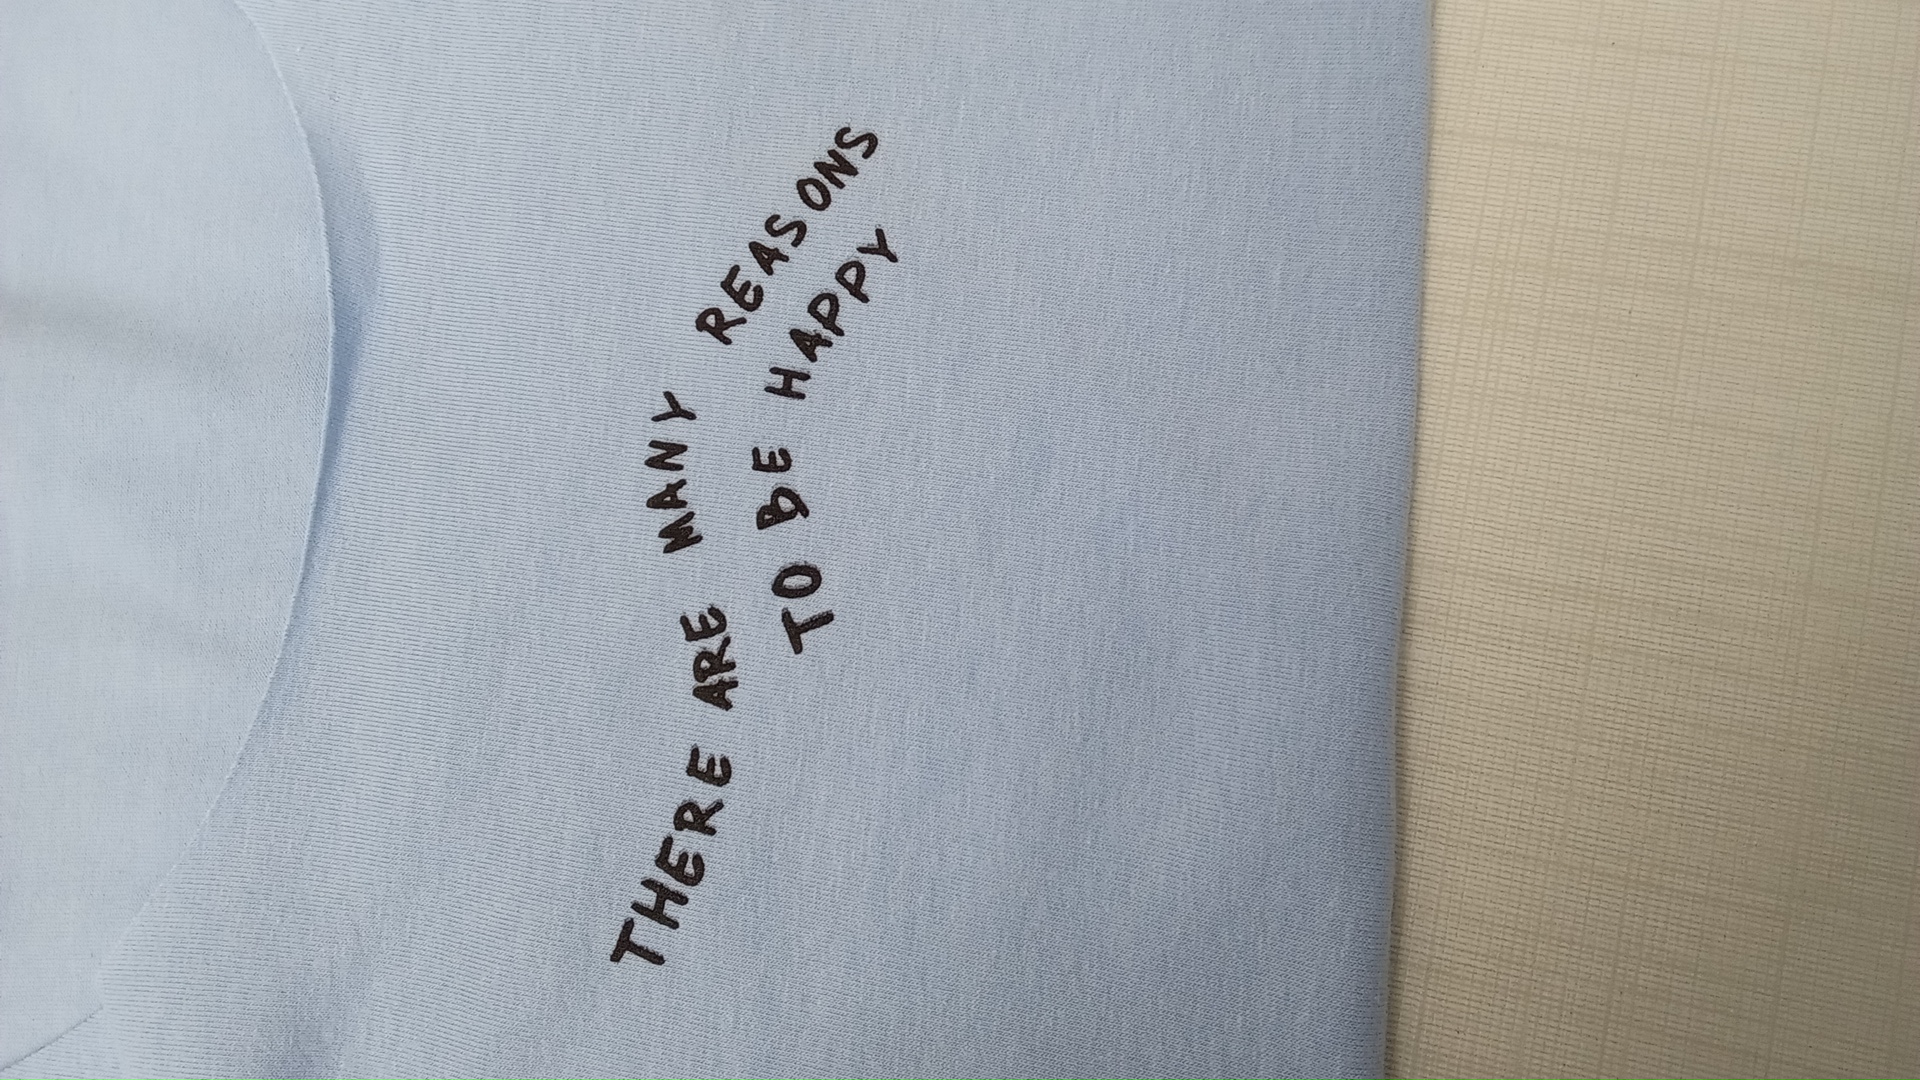 THERE ARE MANY REASONS
TO BE HAPPY